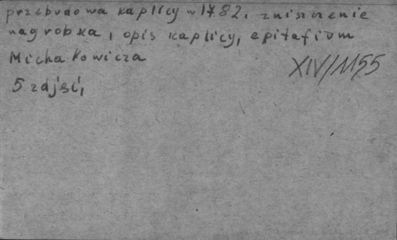 przebudowa kaplicy w 1782, zniszczenie
nagrobka, opis kaplicy, epitafium
Michałowicza
XIV/1155
5 zdjęć,